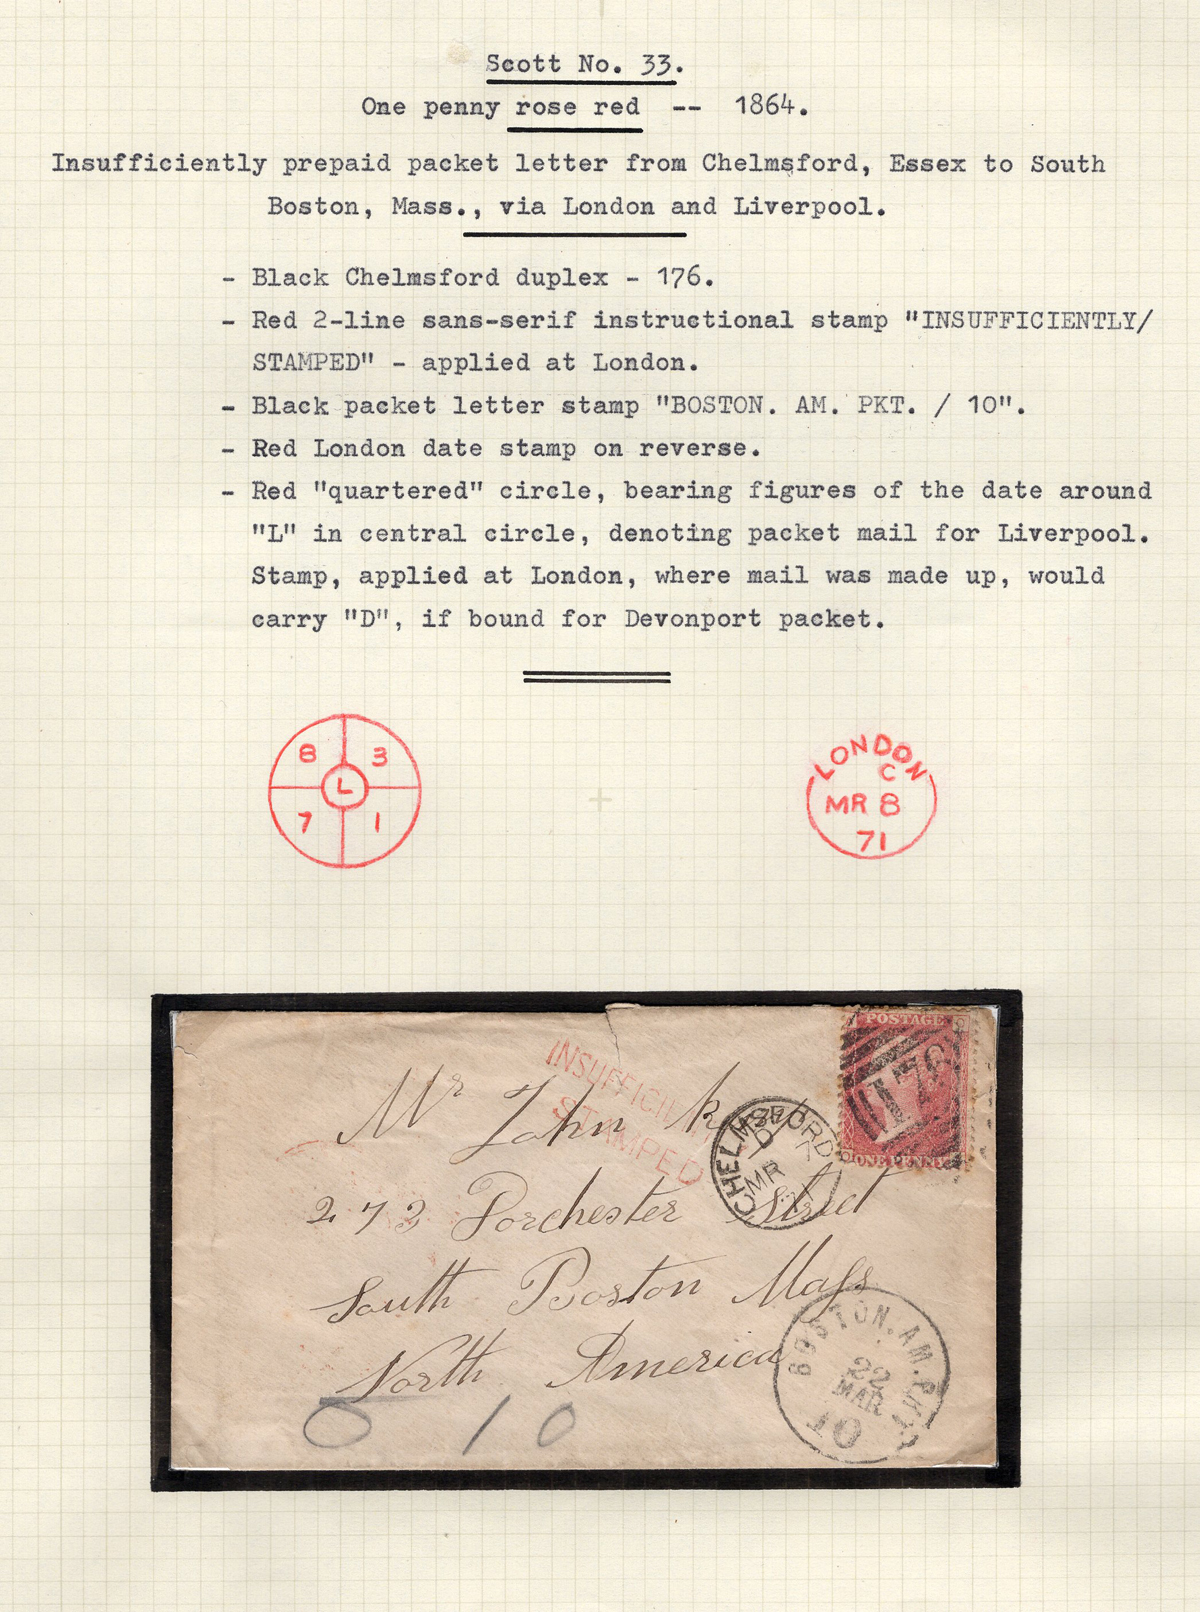 Scott No. 33.
One penny rose red -- 1864.
Insufficiently prepaid packet letter from Chelmsford, Essex to South
Boston, Mass., via London and Liverpool.
- Black Chelmsford duplex - 176.
- Red 2-line sans-serif instructional stamp "INSUFFICIENTLY/
STAMPED" - applied at London.
- Black packet letter stamp "BOSTON. AM. PKT. / 10".
- Red London date stamp on reverse.
- Red "quartered" circle, bearing figures of the date around
"L" in central circle, denoting packet mail for Liverpool.
Stamp, applied at London, where mail was made up, would
carry "D", if bound for Devonport packet.
8 3
L
7 1
LONDON
C
MR 8
71
POSTAGE
176
ONE PENNY
STAMPED
CHELMSFORD
D
MR 7
Mr John
273 Dorchester Street
South Boston Mass
North America
0 10
BOSTON. AM. PKT.
22
MAR
10